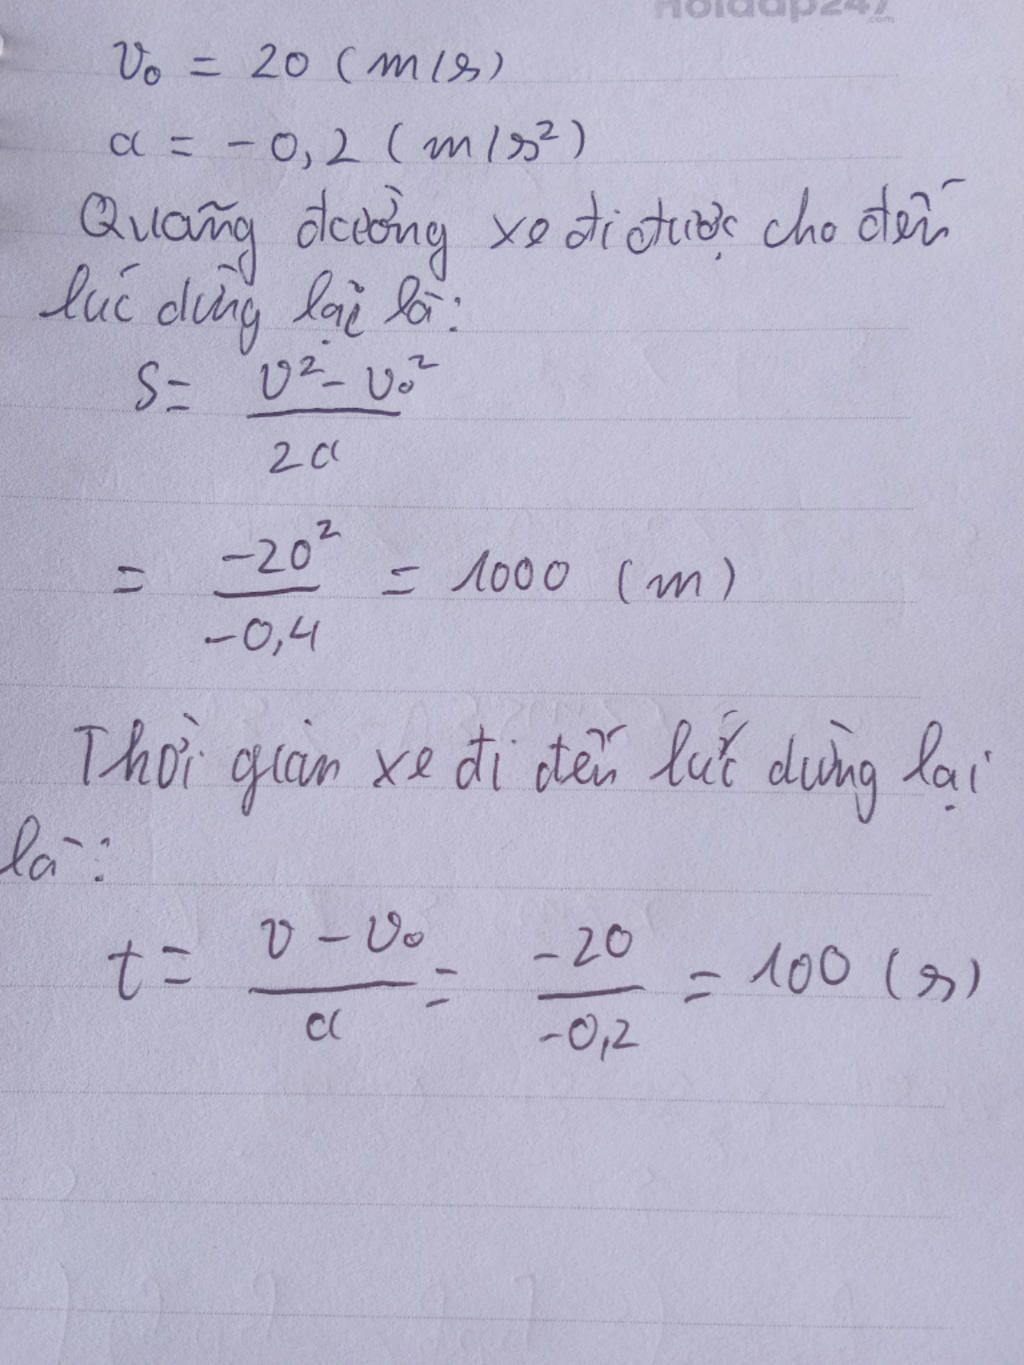 Hoidap247
.com
v₀ = 20 (m/s)
a = -0,2 (m/s²)
Quãng đường xe đi được cho đến
lúc dừng lại là:
S = \frac{v² - v₀²}{2a}
= \frac{-20²}{-0,4} = 1000 (m)
Thời gian xe đi đến lúc dừng lại
là:
t = \frac{v - v₀}{a} = \frac{-20}{-0,2} = 100 (s)